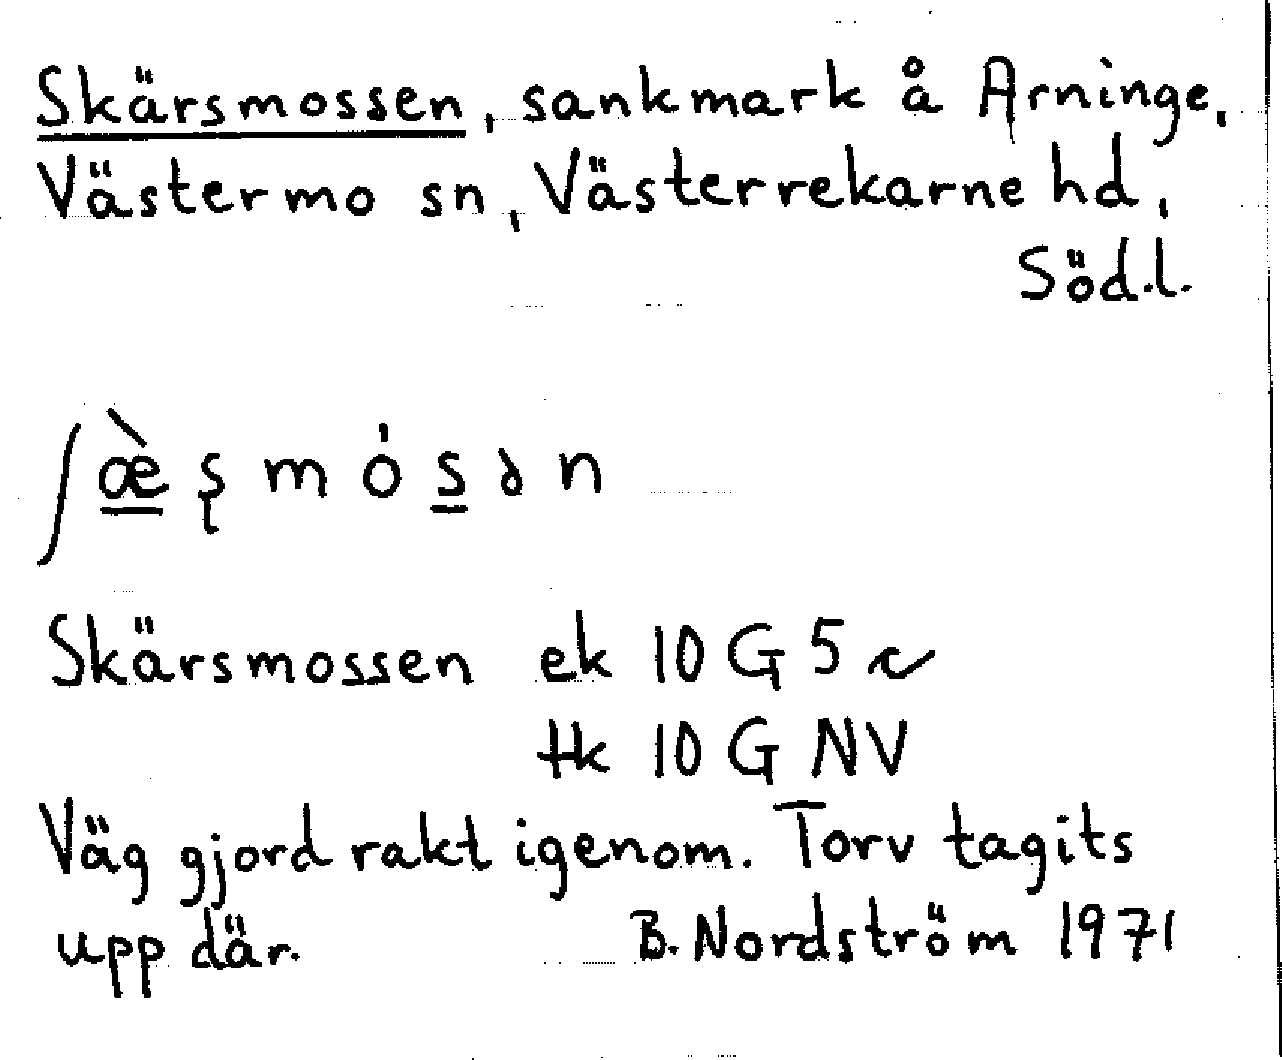 Skärsmossen, sankmark å Arninge,
Västermo sn, Västerrekarne hd,
Söd.l.
ʃæ̲̀ʂmȯs̲ən
Skärsmossen ek 10 G 5 c
tk 10 G NV
Väg gjord rakt igenom. Torv tagits
upp där. B. Nordström 1971